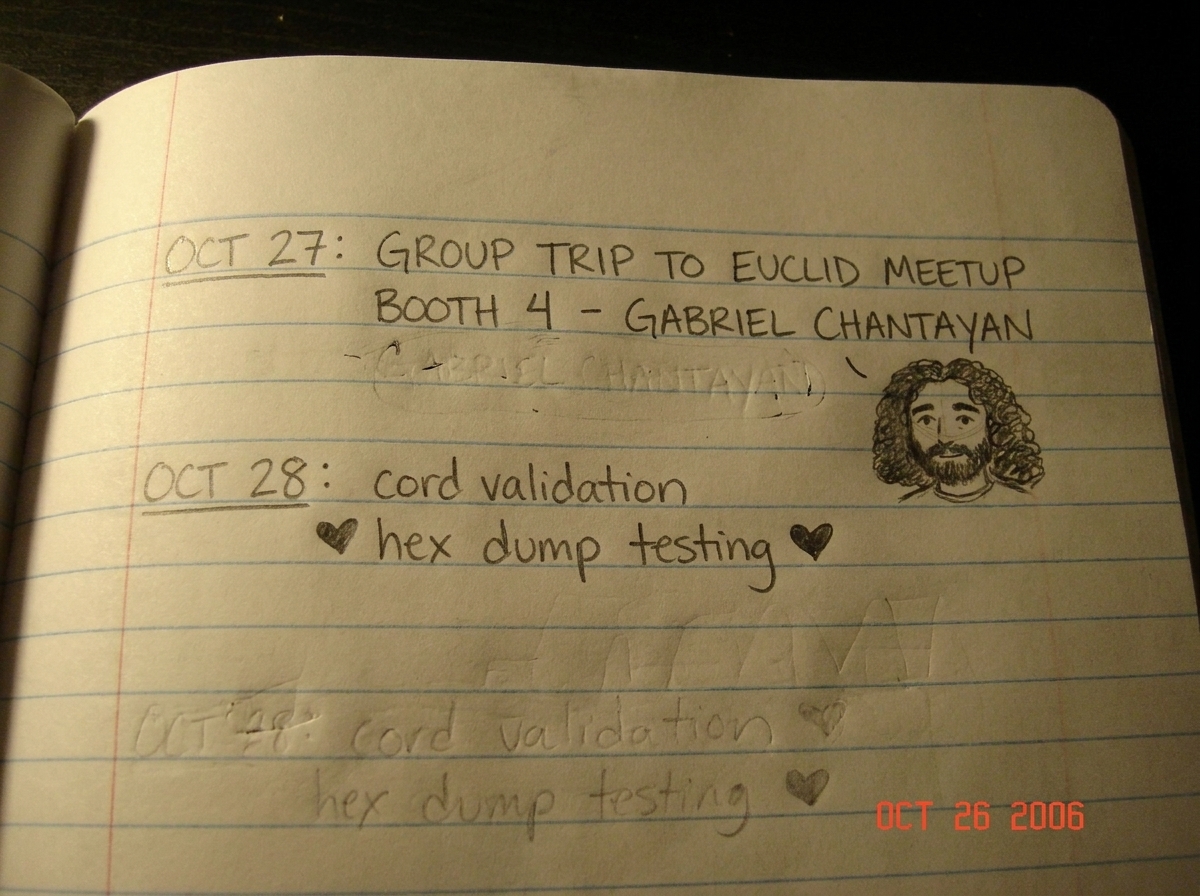 OCT 27: GROUP TRIP TO EUCLID MEETUP
BOOTH 4 - GABRIEL CHANTAYAN
GABRIEL CHANTAYAN
OCT 28: cord validation
♥ hex dump testing ♥
OCT 28: cord validation ♥
hex dump testing ♥
OCT 26 2006